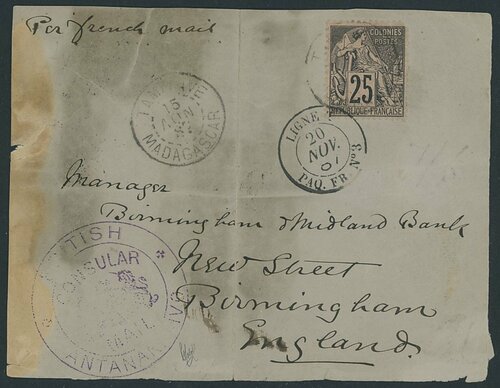 Per french mail
COLONIES
POSTES
25
REPUBLIQUE FRANÇAISE
15
MADAGASCAR
LIGNE
20
NOV.
PAQ. FR. Nº3
Manager
Birmingham & Midland Bank
New Street
Birmingham
England.
BRITISH
CONSULAR
MAIL
ANTANANARIVO